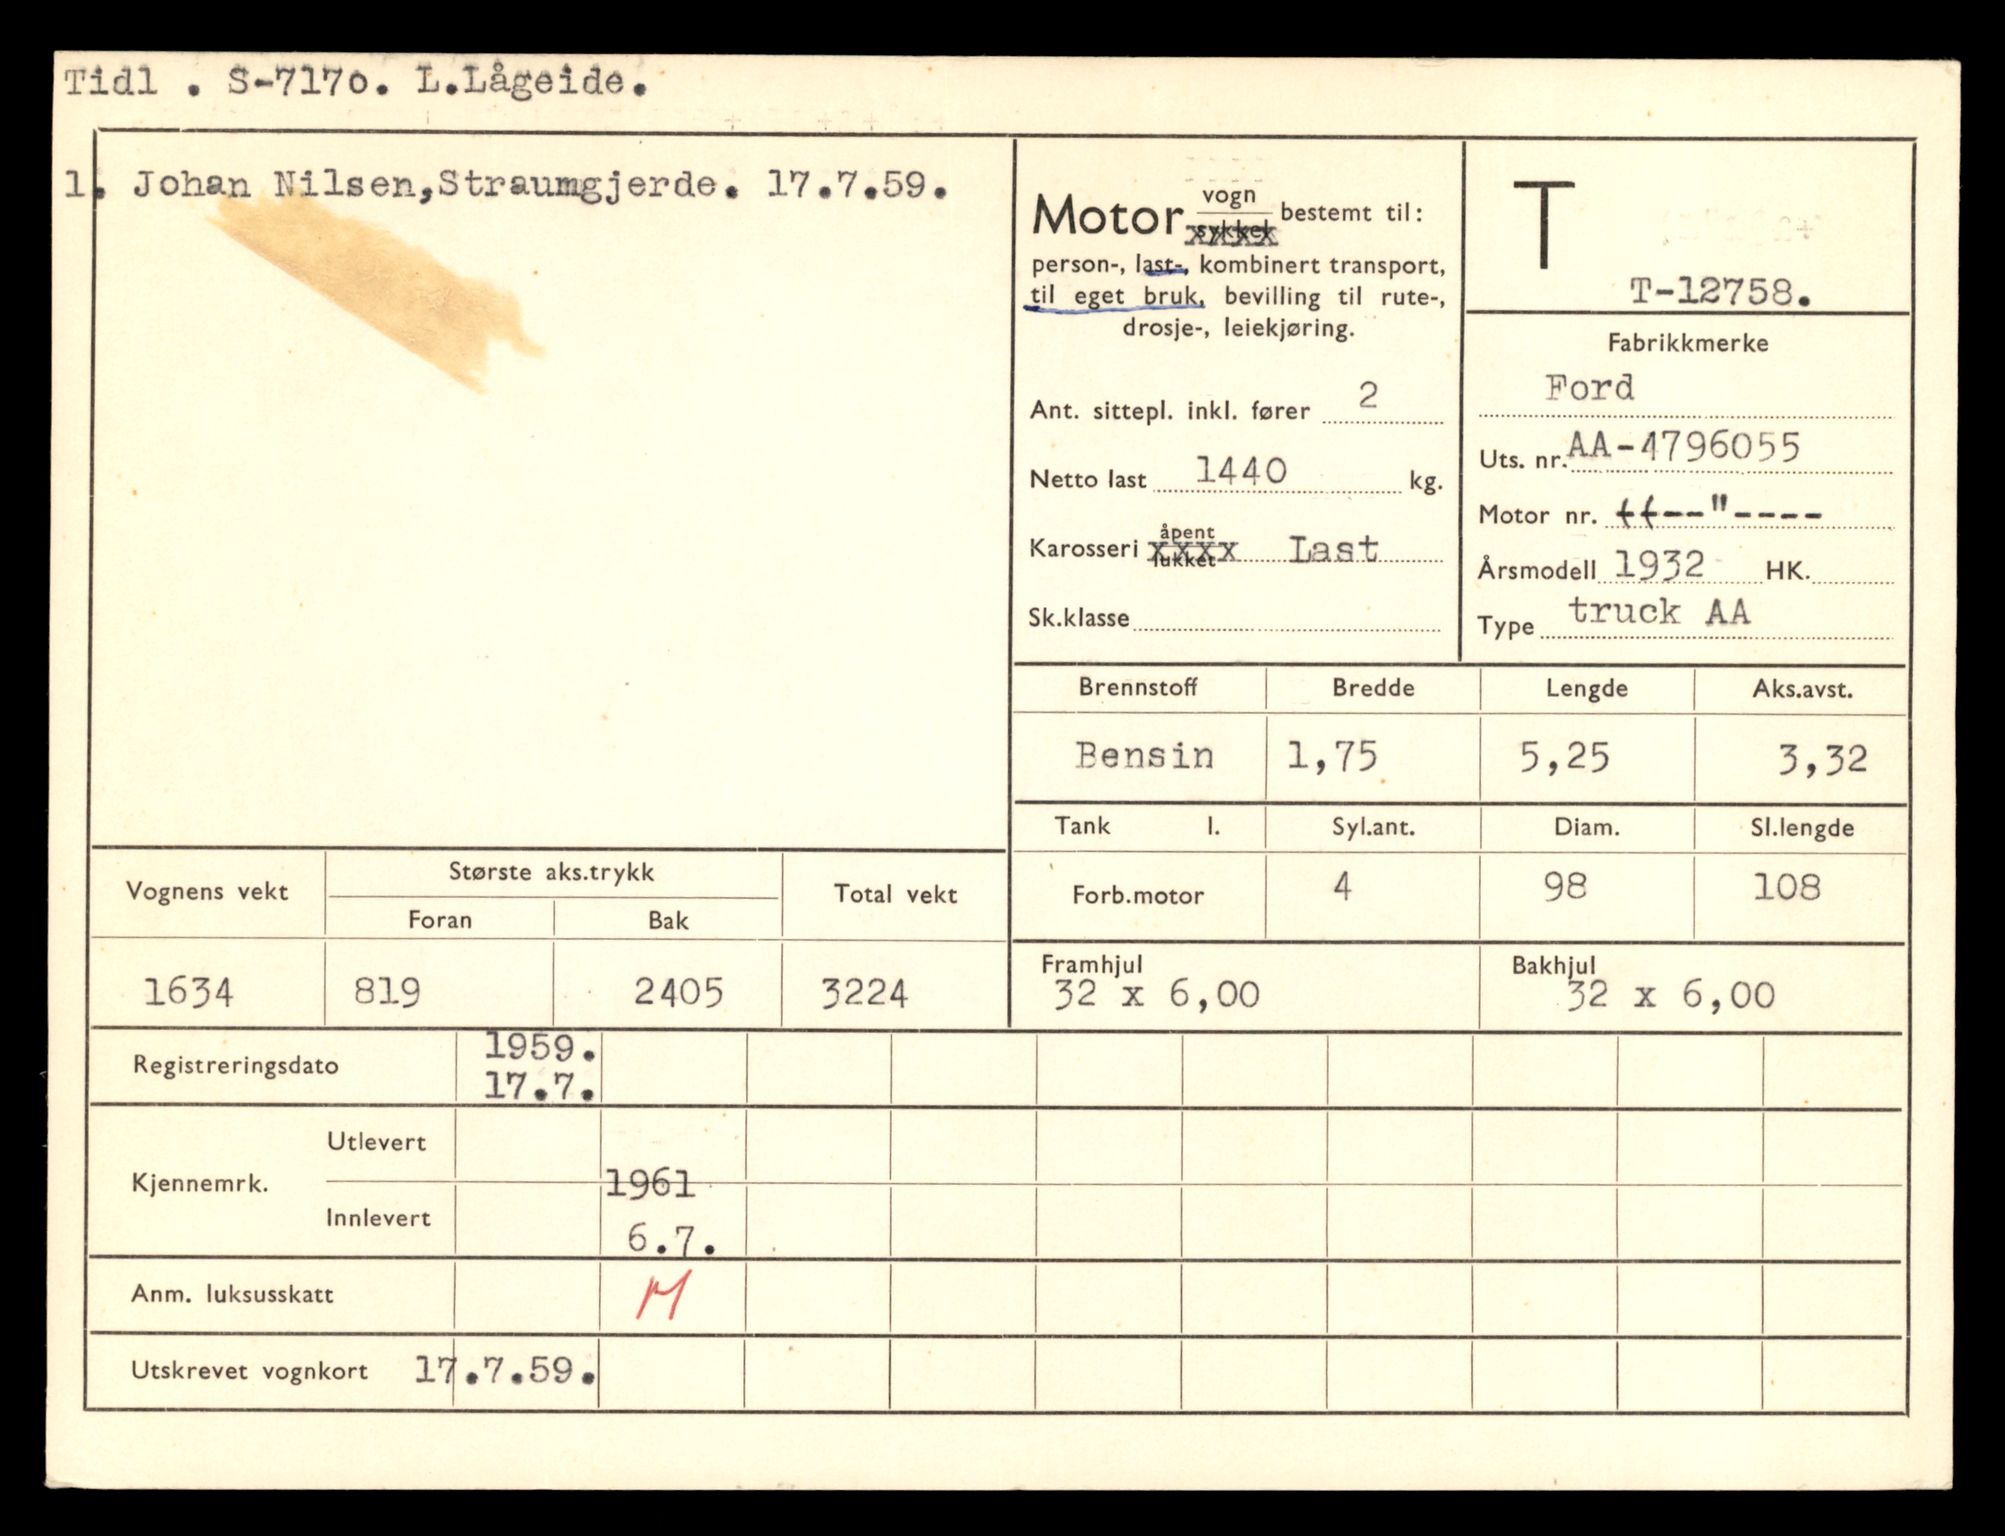 Tidl . S-7170. L.Lågeide.
1. Johan Nilsen,Straumgjerde. 17.7.59.
Motor vogn sykkel bestemt til:
person-, last-, kombinert transport,
til eget bruk, bevilling til rute-,
drosje-, leiekjøring.
Ant. sittepl. inkl. fører 2
Netto last 1440 kg.
Karosseri åpent lukket xxxx Last
Sk.klasse
T
T-12758.
Fabrikkmerke
Ford
Uts. nr. AA-4796055
Motor nr. ((--"----
Årsmodell 1932 HK.
Type truck AA
Brennstoff Bredde Lengde Aks.avst.
Bensin 1,75 5,25 3,32
Tank l. Syl.ant. Diam. Sl.lengde
Forb.motor 4 98 108
Framhjul Bakhjul
32 x 6,00 32 x 6,00
Vognens vekt Største aks.trykk Total vekt
Foran Bak
1634 819 2405 3224
Registreringsdato 1959.
17.7.
Kjennemrk. Utlevert
1961
Innlevert
6.7.
Anm. luksusskatt M
Utskrevet vognkort 17.7.59.